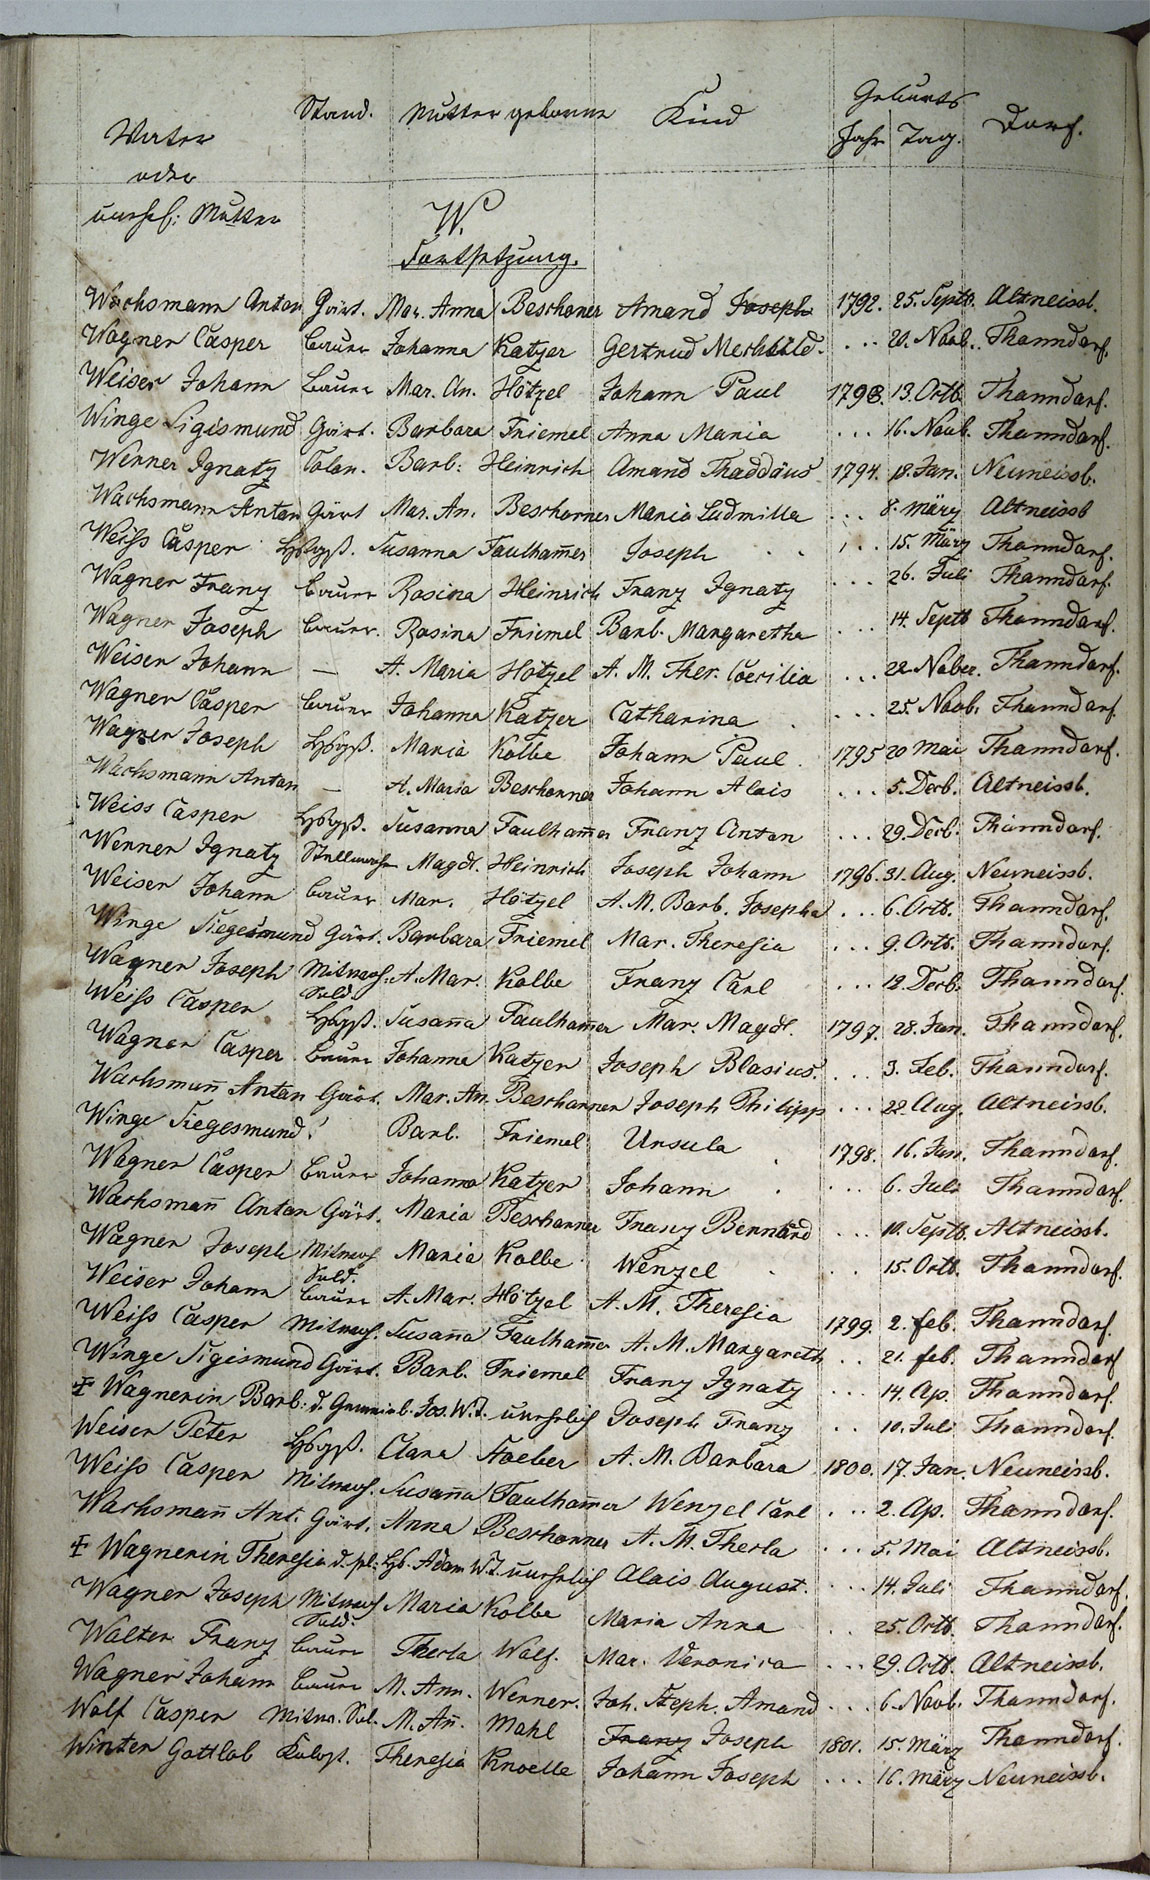 Geburts
Vater Stand. Mutter geborne Kind Jahr Tag. Dorf.
oder
unehel: Mutter W.
Fortsetzung.
Wachsmann Anton Gärt. Mar. Anna Beschorner Amand Joseph 1792. 25. Septb. Altneissb.
Wagner Casper bauer Johanna Katzer Gertrud Mechtild. ... 20. Novb. Thanndorf.
Weiser Johann bauer Mar. An. Hötzel Johann Paul 1793. 13. Octb. Thanndorf.
Winge Sigismund Gärt. Barbara Friemel Anna Maria ... 16. Novb. Thanndorf.
Werner Ignatz Colon. Barb: Heinrich Amand Thaddäus 1794. 18. Jan. Neuneissb.
Wachsmann Anton Gärt Mar. An. Beschorner Maria Ludmilla ... 8. märz Altneissb
Weiss Casper Susanna Faulham̅er Joseph ... 15. März Thanndorf.
Wagner Franz bauer Rosina Heinrich Franz Ignatz ... 26. Juli Thanndorf.
Wagner Joseph bauer. Rosina Friemel Barb. Margaretha ... 14. Septb Thanndorf.
Weiser Johann — A. Maria Hötzel A. M. Ther. Coecilia ... 22. Nober. Thanndorf.
Wagner Casper bauer Johanna Katzer Catharina ... 25. Novb. Thanndorf
Wagner Joseph Maria Kolbe Johann Paul. 1795 20 Mai Thanndorf.
Wachsmann Anton — A. Maria Beschorner Johann Alois ... 5. Decb. Altneissb.
Weiss Casper Susanna Faulham̅er Franz Anton ... 29. Decb. Thanndorf.
Werner Ignatz Magd. Heinrich Joseph Johann 1796. 31. Aug. Neuneissb.
Weiser Johann bauer Mar. Hötzel A. M. Barb. Josepha ... 6. Octb. Thanndorf.
Winge Siegesmund Gärt. Barbara Friemel Mar. Theresia ... 9. Octb. Thanndorf.
Wagner Joseph A. Mar. Kolbe Franz Carl ... 12. Decb. Thanndorf.
Weiss Casper Susan̅a Faulham̅er Mar. Magdl. 1797. 28. Jan. Thanndorf.
Wagner Casper bauer Johanna Katzer Joseph Blasius. ... 3. Feb. Thanndorf.
Wachsman̅ Anton Gärt. Mar. An. Beschorner Joseph Philipp ... 22. Aug. Altneissb.
Winge Siegesmund. Barb. Friemel Ursula 1798. 16. Jan. Thanndorf.
Wagner Casper bauer Johanna Katzer Johann ... 6. Juli Thanndorf.
Wachsman̅ Anton Gärt. Maria Beschorner Franz Bernard ... 10. Septb. Altneissb.
Wagner Joseph Maria Kolbe Wenzel 15. Octb. Thanndorf.
Weiser Johann bauer A. Mar. Hötzel A. M. Theresia 1799. 2. feb. Thanndorf.
Weiss Casper Susan̅a Faulham̅er A. M. Margareth .. 21. feb. Thanndorf
Winge Sigismund Gärt. Barb. Friemel Franz Ignatz ... 14. Ap. Thanndorf.
Wagnerin Barb: Jos. W. T. unehelich Joseph Franz .. 10. Juli Thanndorf.
Weiser Peter Clara A. M. Barbara 1800. 17. Jan. Neuneissb.
Weiss Casper Susan̅a Faulham̅er Wenzel Carl ... 2. Ap. Thanndorf.
Wachsman̅ Ant. Gärt. Anna Beschorner A. M. Thecla ... 5. Mai Altneissb.
Wagnerin Theresia Adam W. T. unehelich Alois August. ... 14. Juli Thanndorf.
Wagner Joseph Maria Kolbe Maria Anna .. 25. Octb. Thanndorf.
Walter Franz bauer Thecla Wolf. Mar. Veronica ... 29. Octb. Altneissb.
Wagner Johann bauer M. Ann. Werner. Joh. Steph. Amand ... 6. Novb. Thanndorf.
Wolf Casper M. An̅. Mahl Franz Joseph 1801. 15. März Thanndorf.
Winter Gottlob Theresia Knoelle Johann Joseph ... 16. März Neuneissb.